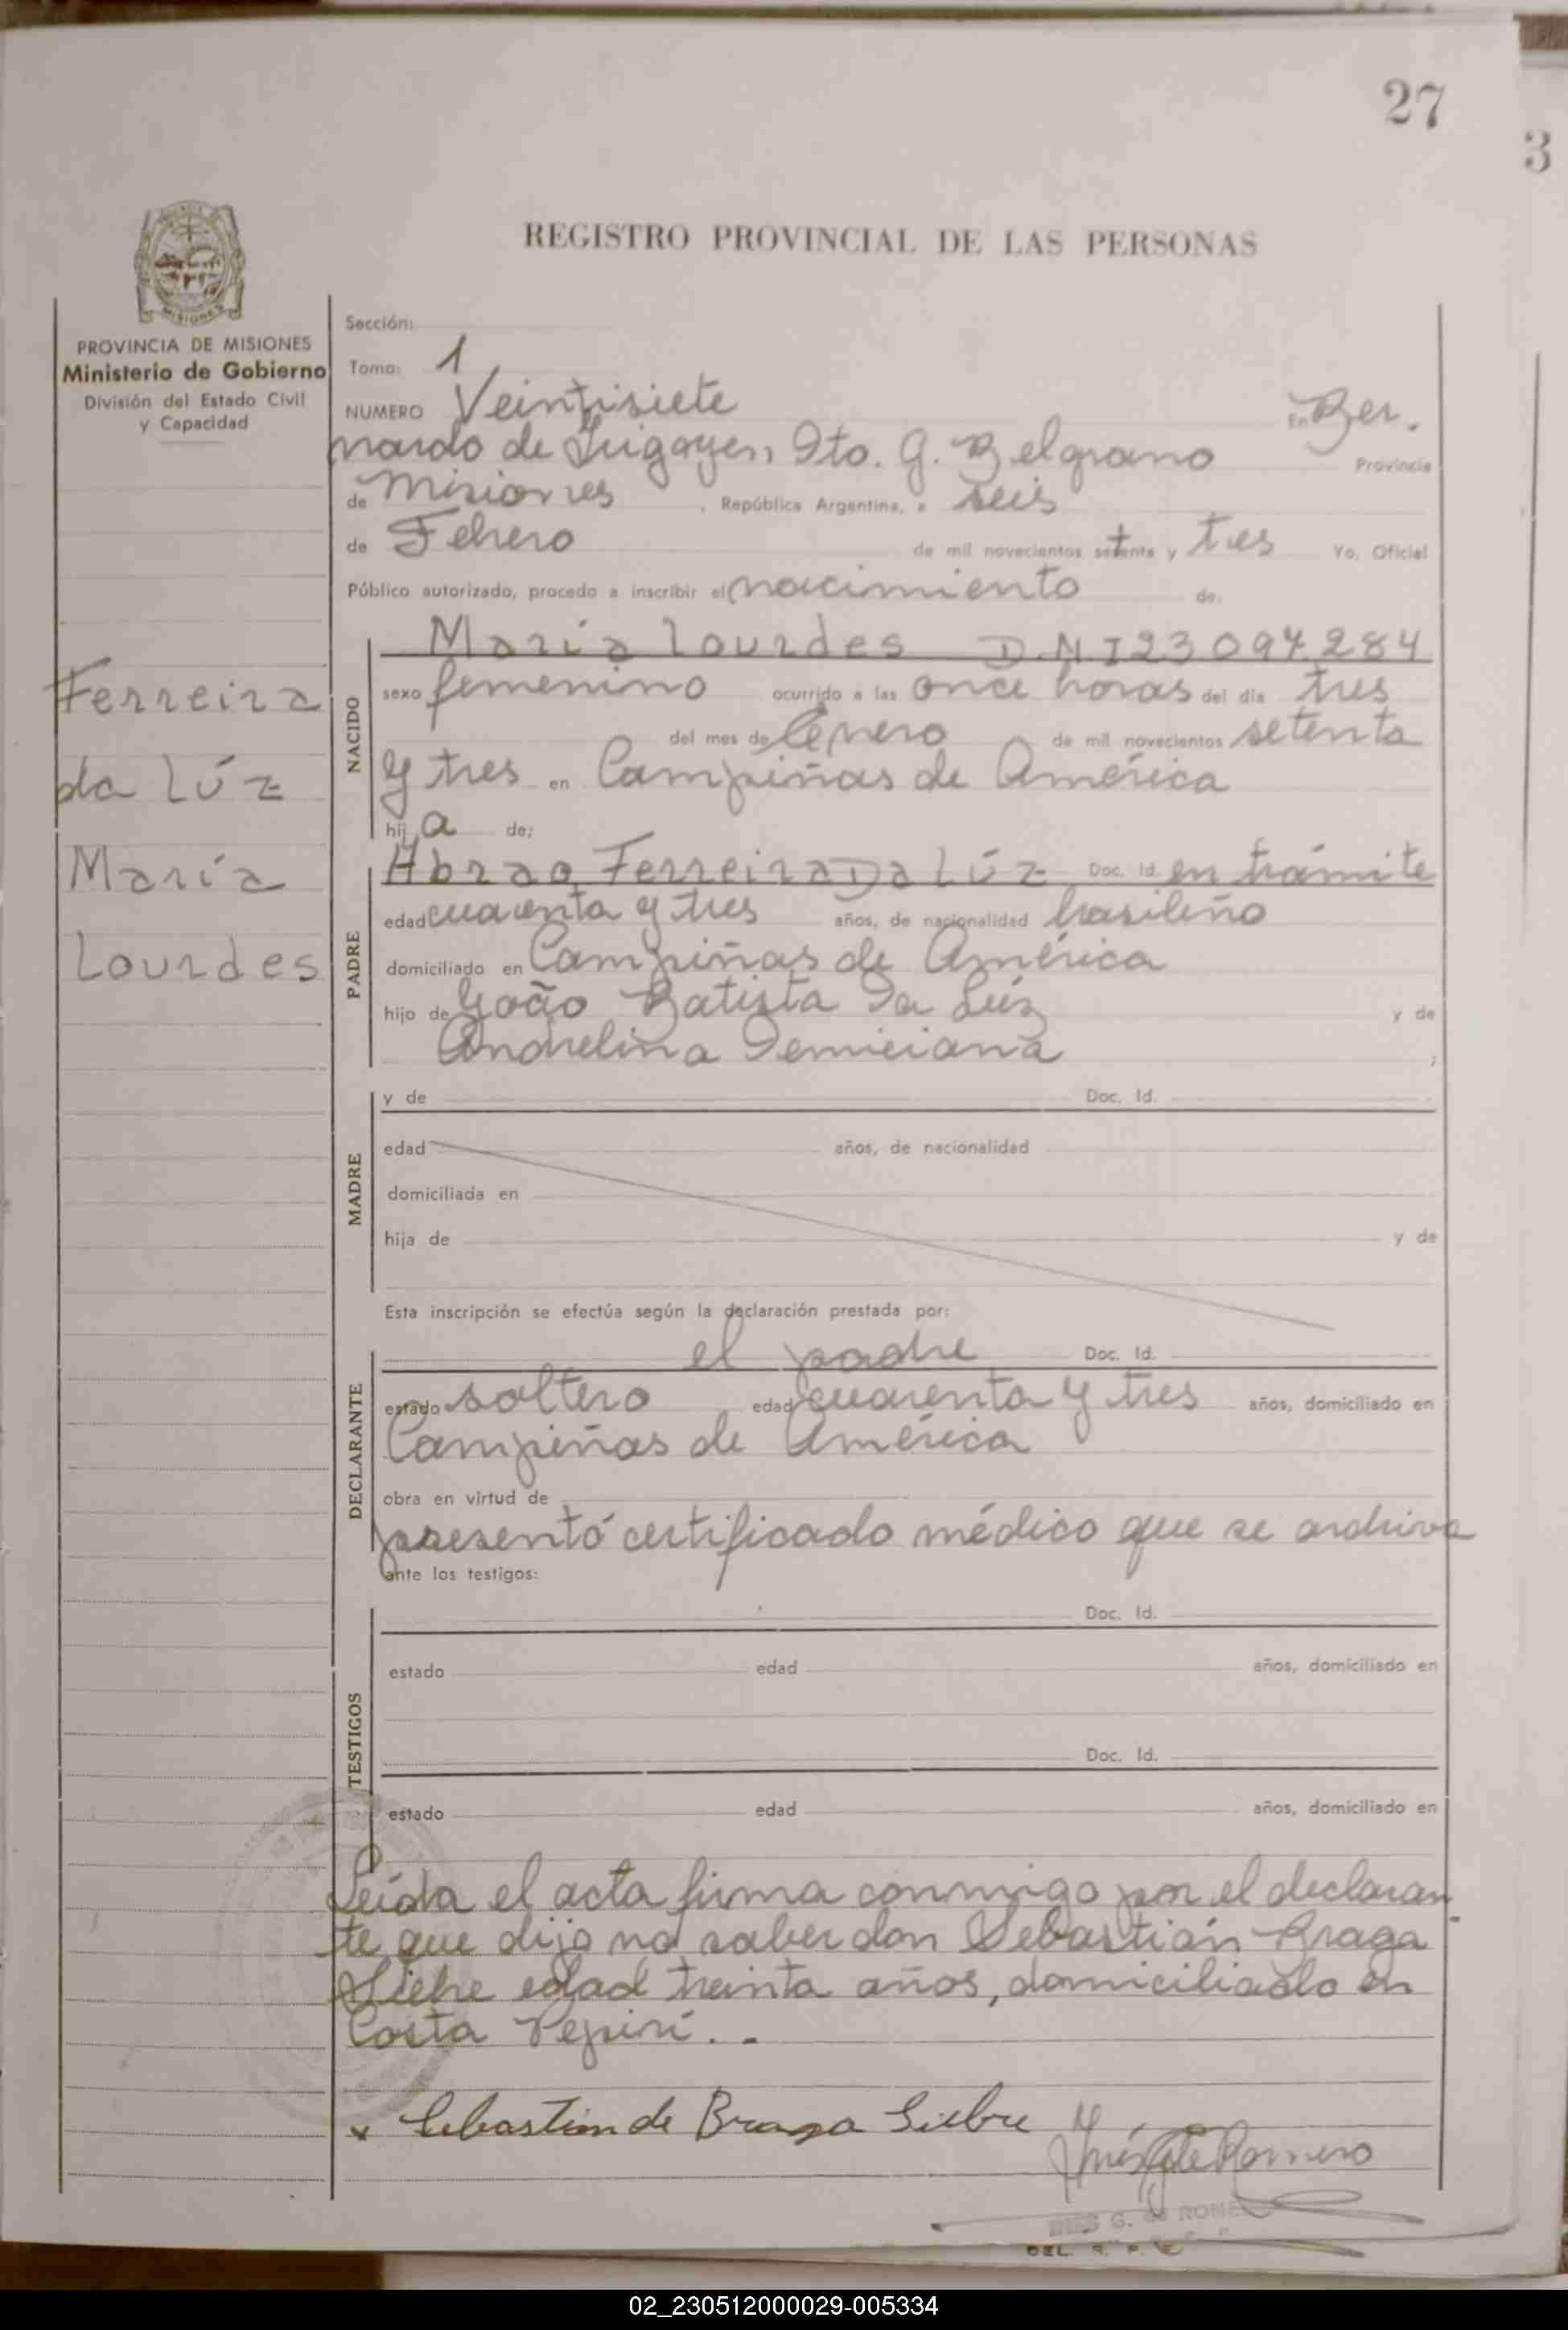 27
3
REGISTRO PROVINCIAL DE LAS PERSONAS
MISIONES
PROVINCIA DE MISIONES
Ministerio de Gobierno
División del Estado Civil
y Capacidad
Ferreira
da Lúz
María
Lourdes
Sección:
Tomo: 1
NUMERO Veintisiete En Ber.
nardo de Irigoyen, Dto. G. Belgrano Provincia
de Misiones, República Argentina, a seis
de Febrero de mil novecientos setenta y tres Yo, Oficial
Público autorizado, procedo a inscribir el nacimiento de:
NACIDO
María Lourdes D.N.I 23 094 284
sexo femenino ocurrido a las once horas del día tres
del mes de Enero de mil novecientos setenta
y tres en Campiñas de América
hij a de:
PADRE
Abrao Ferreira Da Lúz Doc. Id. en trámite
edad cuarenta y tres años, de nacionalidad brasileño
domiciliado en Campiñas de América
hijo de João Batista Da Lúz y de
Andrelina ;
MADRE
y de Doc. Id.
edad años, de nacionalidad
domiciliada en
hija de y de
Esta inscripción se efectúa según la declaración prestada por:
DECLARANTE
el padre Doc. Id.
estado soltero edad cuarenta y tres años, domiciliado en
Campiñas de América
obra en virtud de
presentó certificado médico que se archiva
ante los testigos:
TESTIGOS
Doc. Id.
estado edad años, domiciliado en
Doc. Id.
estado edad años, domiciliado en
Leída el acta firma conmigo por el declaran
te que dijo no saber don Sebastián Braga
Siebre edad treinta años, domiciliado en
Costa Pepirí. . -
x Sebastian de Braga Siebre
Inés G de Romero
INES G. de ROMERO
DEL. R. P.
02_230512000029-005334